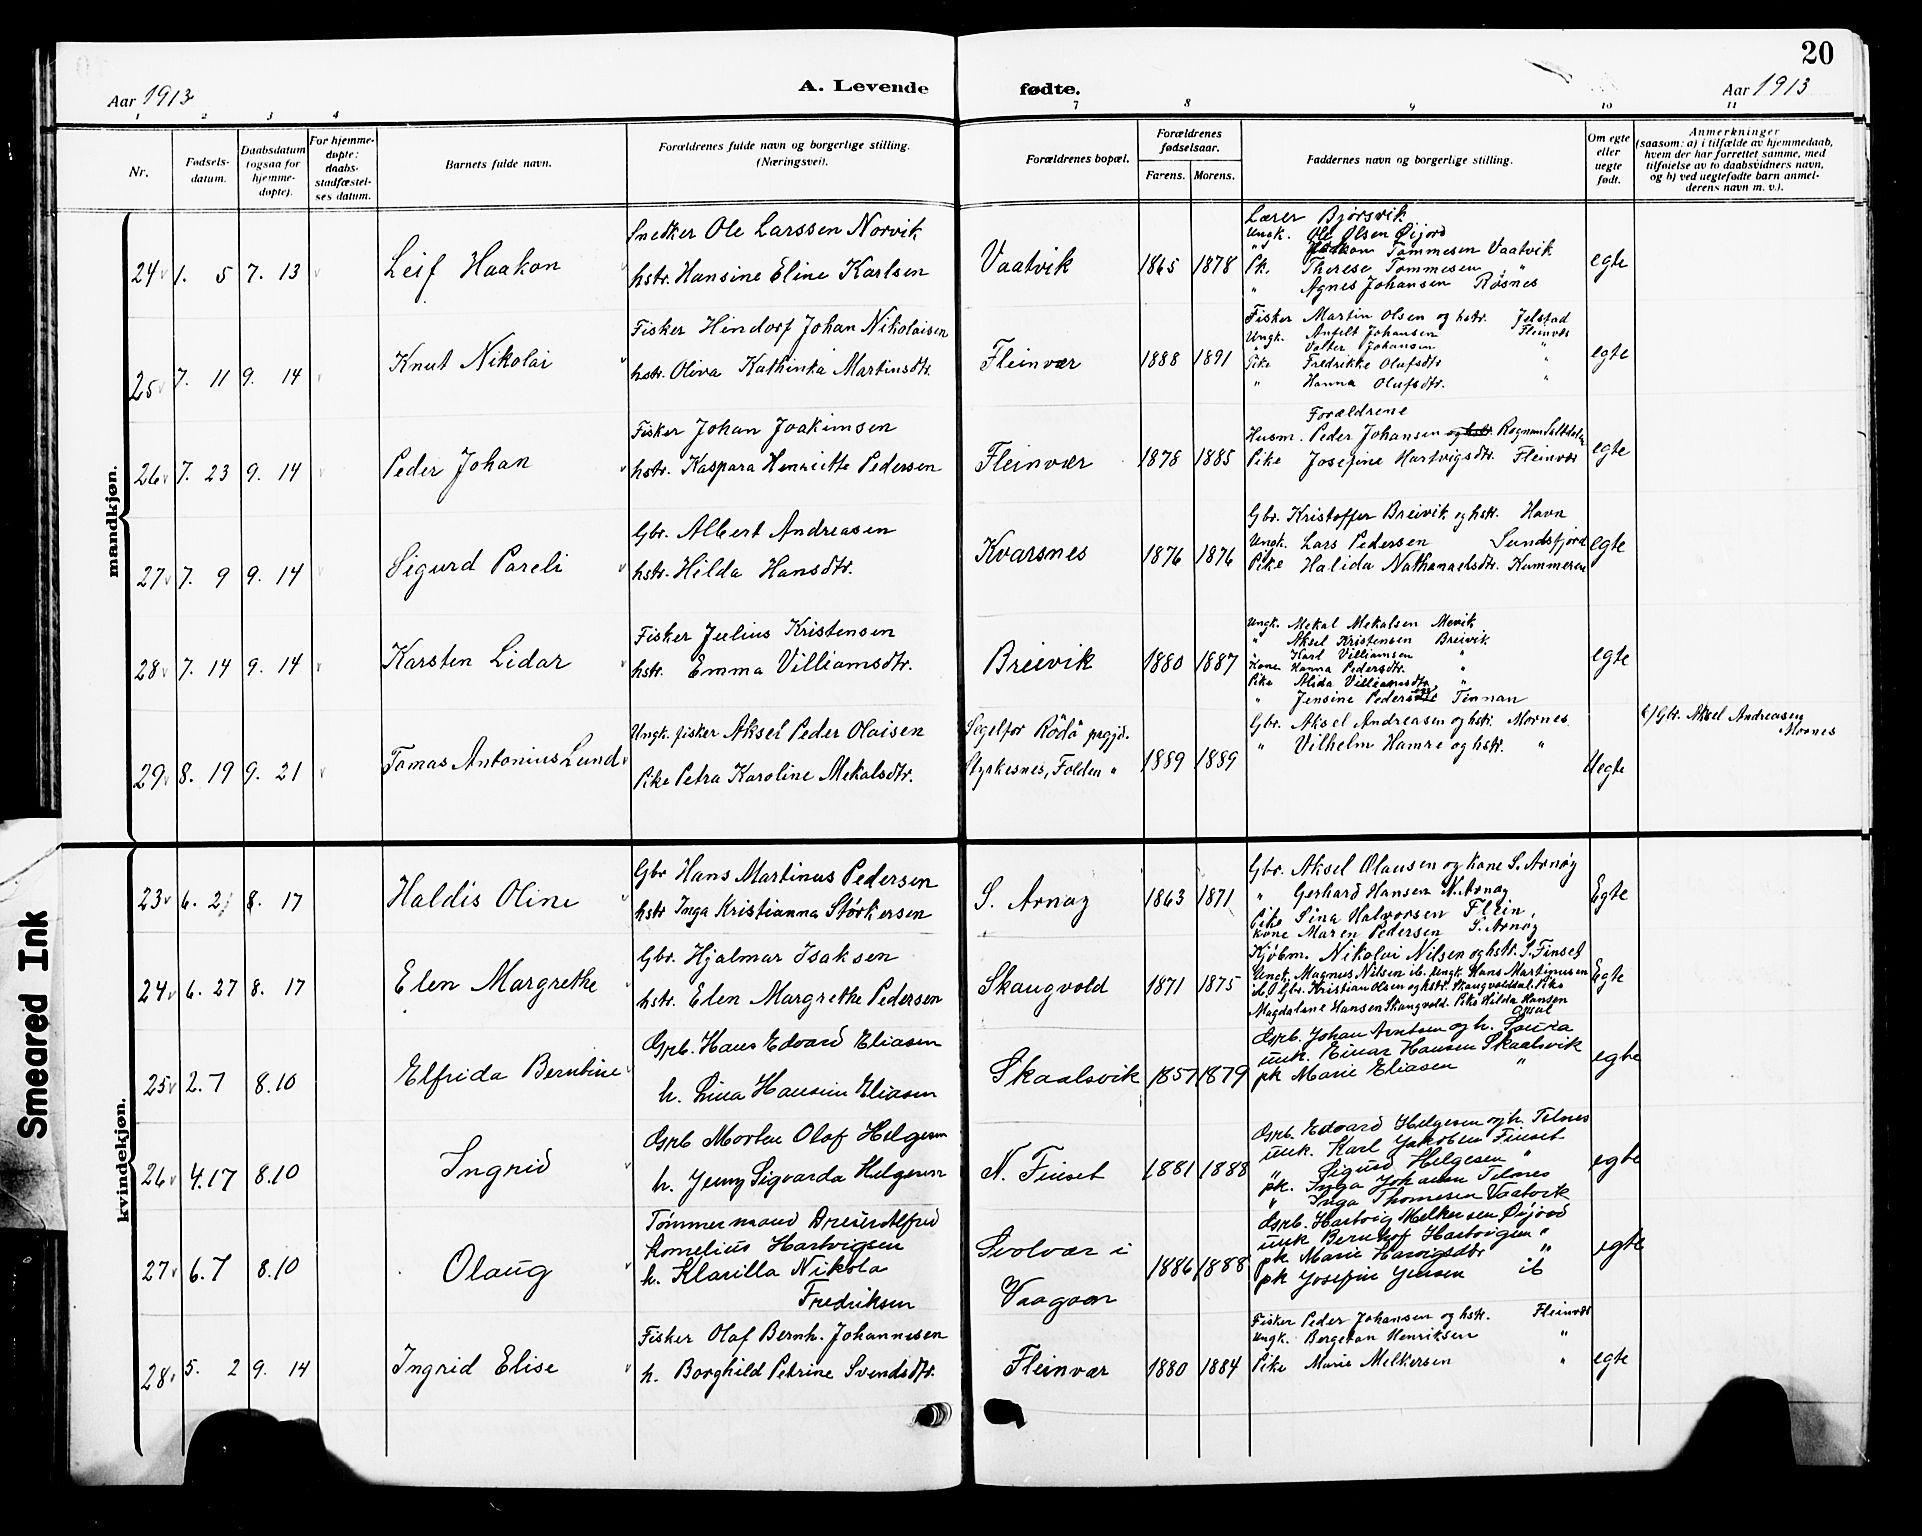 20
Aar 1913
A. Levende
fødte.
Aar 1913
1 2 3 4 7 8 9 10 11
Nr.
Fødsels-
datum.
Daabsdatum
(ogsaa for
hjemme-
døpte).
For hjemme-
døpte:
daabs-
stadfæstel-
ses datum.
Barnets fulde navn.
Forældrenes fulde navn og borgerlige stilling.
(Næringsvei).
Forældrenes bopæl.
Forældrenes
fødselsaar.
Farens. Morens.
Faddernes navn og borgerlige stilling.
Om egte
eller
uegte
født.
Anmerkninger
(saasom: a) i tilfælde av hjemmedaab,
hvem der har forrettet samme, med
tilføielse av to daabsvidners navn,
og b) ved uegtefødte barn anmel-
derens navn m. v.).
mandkjøn.
24 1. 5 7. 13
Leif Haakon
Snedker Ole Larssen Norvik
hstr. Hansine Eline Karlsen
Vaatvik
1865 1878
Lærer Bjørsvik
Ungk. Ole Olsen Øijord
" Haakon Tommesen Vaatvik
Pk. Therese Tommesen "
" Agnes Johansen Røsnes
egte
25 7. 11 9. 14
Knut Nikolai
Fisker Hindorf Johan Nikolaisen
hstr. Oliva Kathinka Martinsdtr.
Fleinvær
1888 1891
Fisker Martin Olsen og hstr. Jelstad
Ungk. Anfelt Johansen Fleinvær
" Valter Johansen "
Pike Fredrikke Olufsdtr "
" Hanna Olufsdtr. "
egte
26 7. 23 9. 14
Peder Johan
Fisker Johan Joakimsen
hstr. Kaspara Henriette Pedersen
Fleinvær
1878 1885
Forældrene
Husm. Peder Johansen og hstr. Rognan Saltdalen
Pike Josefine Hartvigsdtr. Fleinvær
egte
27 7. 9 9. 14
Sigurd Pareli
Gbr. Albert Andreasen
hstr. Hilda Hansdtr.
Kvarsnes
1876 1876
Gbr. Kristoffer Breivik og hstr. Havn
Ungk. Lars Pedersen Sundsfjord
Pike Halida Nathanaelsdtr. Kummeren
egte
28 7. 14 9. 14
Karsten Lidar
Fisker Julius Kristensen
hstr. Emma Villiamsdtr.
Breivik
1880 1887
Ungk. Mekal Mekalsen Mevik
" Aksel Kristensen Breivik
" Karl Villiamsen "
Kone Hanna Pedersdtr. "
Pike Alida Villiamsdtr. "
" Jensine Pedersdtr Finnan
egte
29 8. 19 9. 21
Tomas Antonius Lund
Ungk. fisker Aksel Peder Olaisen
Pike Petra Karoline Mekalsdtr.
Segelfor Rödö prgjd.
Styrkesnes, Folden "
1889 1889
Gbr. Aksel Andreasen og hstr. Mornes
" Vilhelm Hamre og hstr. "
Uegte
b) Gbr. Aksel Andreasen
Mornes
kvindekjøn.
23 6. 2 8. 17
Haldis Oline
Gbr Hans Martinus Pedersen
hstr Inga Kristianna Størkersen
S. Arnøy
1863 1871
Gbr. Aksel Olausen og kone S. Arnøy
" Gerhard Hansen N. Arnøy
Pike Sina Halvorsen Flein.
kone Maren Pedersen S. Arnøy
Egte
24 6. 27 8. 17
Elen Margrethe
Gbr. Hjalmar Isaksen
hstr. Elen Margrethe Pedersen
Skaugvold
1871 1875
Kjöbm. Nikolai Nilsen og hstr. S. Finset
Ungk. Magnus Nilsen ib. Ungk. Hans Martinusen
ib. Gbr. Kristian Olsen og hstr. Skaugvoldal. Pike
Magdalene Hansen Skaugvold. Pike Hilda Hansen
Egte
25 2. 7 8. 10
Elfrida Berntine
Grb. Hans Edvard Eliasen
h. Lina Hansine Eliasen
Skaalsvik
1857 1879
Grb. Johan Arntsen og h. Saura
unk. Einar Hansen Skaalsvik
pk Marie Eliasen "
egte
26 4. 17 8. 10
Ingrid
Grb Morten Olaf Helgesen
h. Jenny Sigvarda Helgesen
N. Finset
1881 1888
Grb. Edvard Helgesen og h. Telnes
unk. Karl Jakobsen Finset
" Sigurd Helgesen "
pk. Inga Johansen Telnes
" Inga Thomesen Vaatvik
egte
27 6. 7 8. 10
Olaug
Tømmermand Alfred
Kornelius Hartvigsen
h. Klarilla Nikola
Fredriksen
Svolvær i
Vaagan
1886 1888
Grb. Hartvig Melkersen Øijord
unk Bernhof Hartvigsen "
pk Marie Harvigsdtr "
pk Josefine Jensen ib
egte
28 5. 2 9. 14
Ingrid Elise
Fisker Olaf Bernh. Johannesen
h. Borghild Petrine Svendsdtr.
Fleinvær
1880 1884
Fisker Peder Johansen og hstr. Fleinvær
Ungk. Bergeton Henriksen "
Pike Marie Melkersen "
egte
Smeared Ink